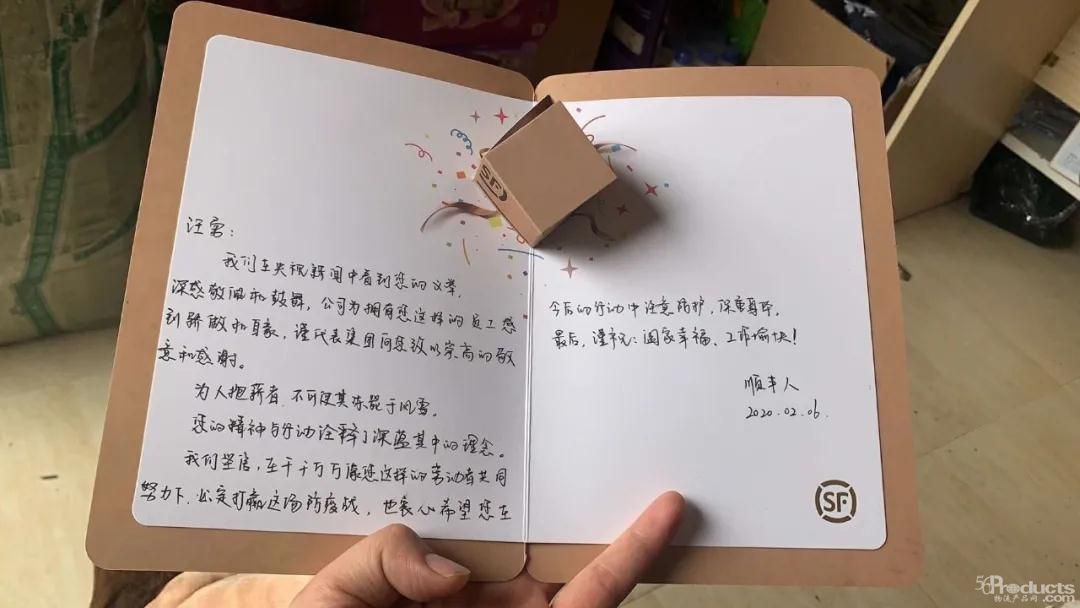 汪勇:
我们在央视新闻中看到您的义举,
深感敬佩和鼓舞,公司为拥有您这样的员工感
到骄傲和自豪,谨代表集团向您致以崇高的敬
意和感谢。
为人抱薪者,不可使其冻毙于风雪。
您的精神与行动诠释了深蕴其中的理念。
我们坚信,在千千万万像您这样的劳动者共同
努力下,必定打赢这场防疫战,也衷心希望您在
今后的行动中注意防护,保重身体,
最后,谨祝:阖家幸福、工作愉快!
顺丰人
2020.02.06.
SF
SF
56Products
物流产品网.com